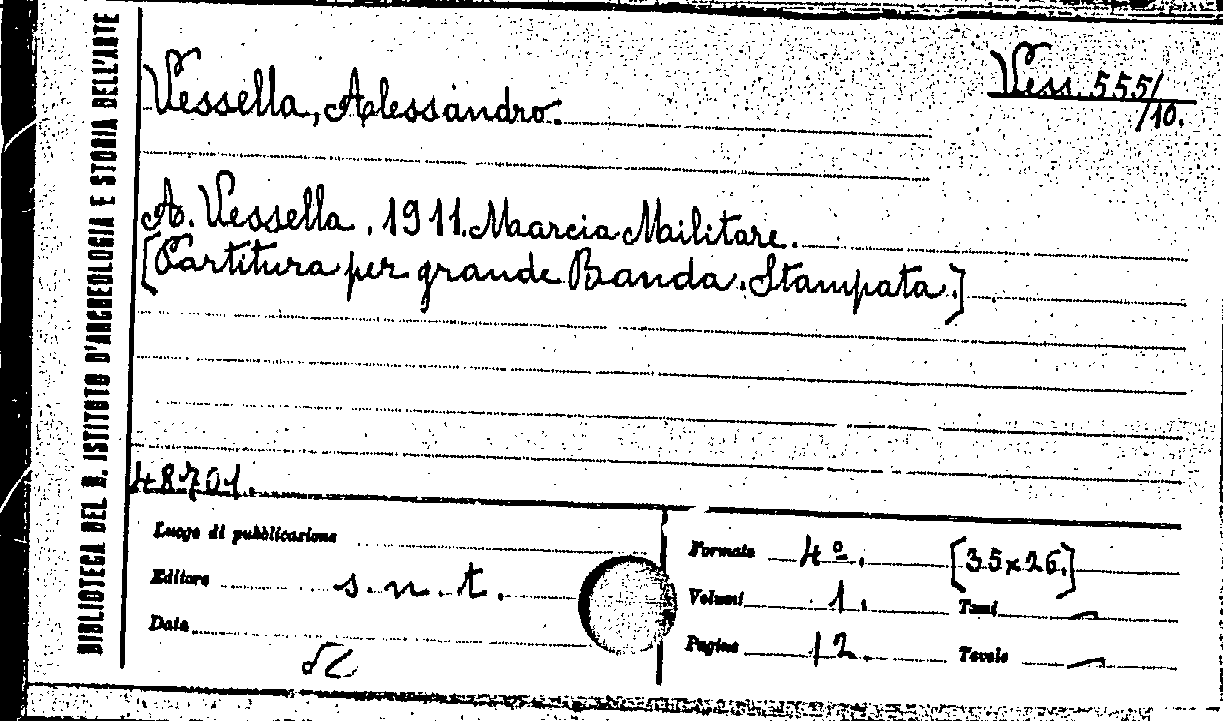 BIBLIOTECA DEL R. ISTITUTO D'ARCHEOLOGIA E STORIA DELL'ARTE
Vessella, Alessandro.
Vess. 555/
/10.
A. Vessella. 1911. Marcia Militare.
[Partitura per grande Banda. Stampata.]
48701.
Luogo di pubblicazione
Editore s. n. t.
Data
Formato 4º. [35x26.]
Volumi 1. Tomi —
Pagine 12. Tavole —